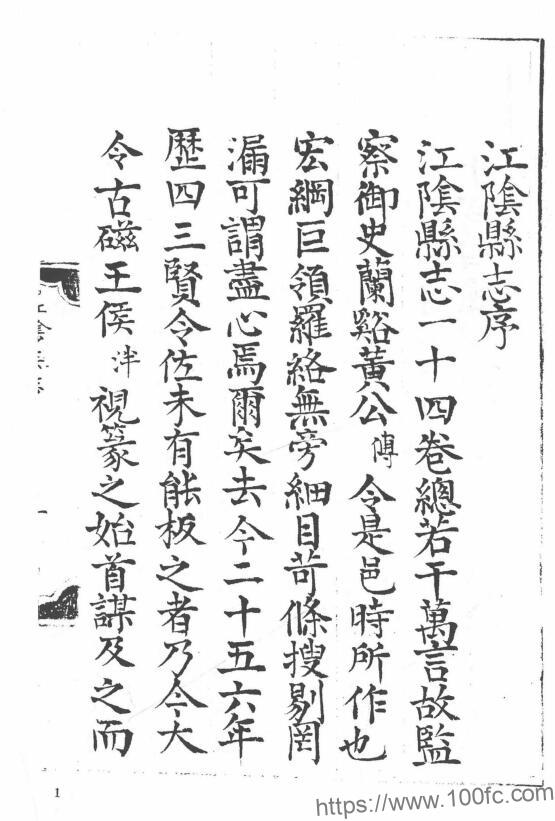 江陰縣志序
江陰縣志一十四卷總若干萬言故監
察御史蘭谿黃公傅令是邑時所作也
宏綱巨領羅絡無旁細目苛條搜剔罔
漏可謂盡心焉爾矣去今二十五六年
歷四三賢令佐未有能板之者乃今大
令古磁王侯泮視篆之始首謀及之而
1
https://www.100fc.com